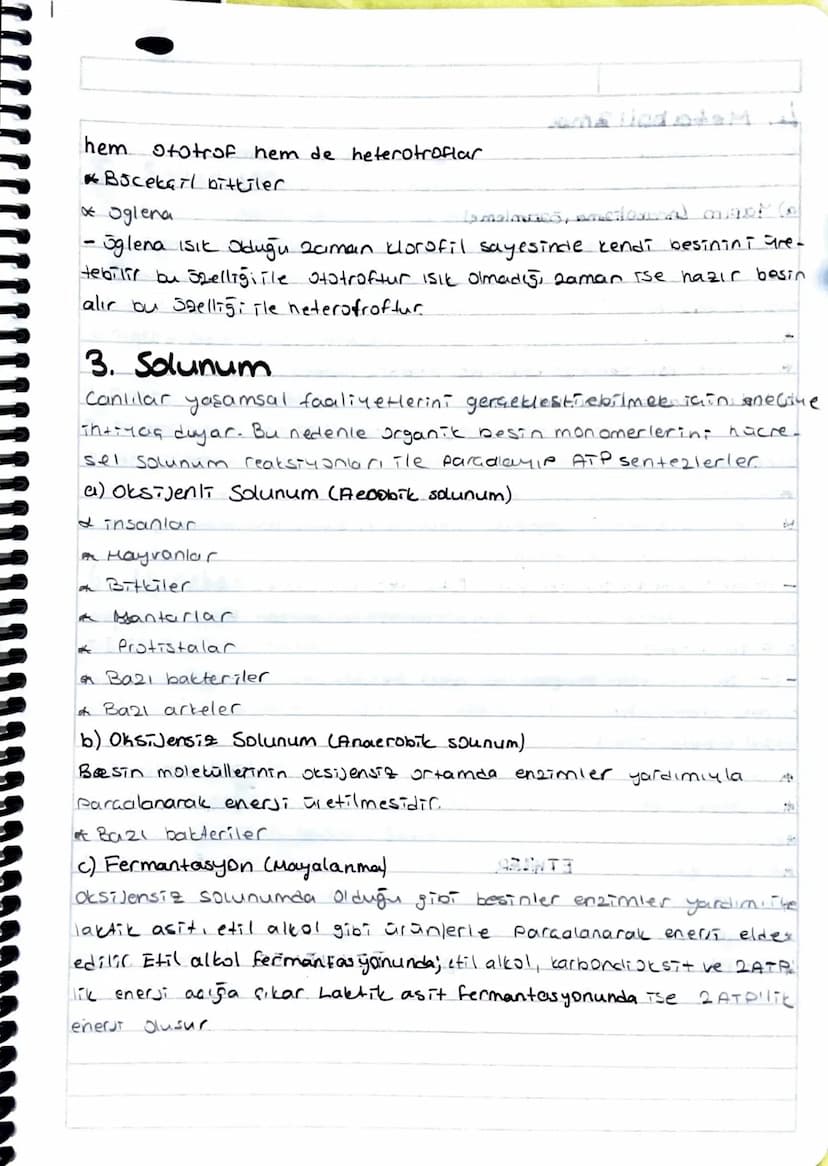 hem ototrof hem de heterotroflar
* Böcekçil bitkiler
* öglena
- öglena ışık olduğu zaman klorofil sayesinde kendi besinini üre-
tebilir bu özelliği ile ototroftur ışık olmadığı zaman ise hazır besin
alır bu özelliği ile heterotroftur.
3. Solunum
Canlılar yaşamsal faaliyetlerini gerçekleştirebilmek için enerjiye
ihtiyaç duyar. Bu nedenle organik besin monomerlerini hücre-
sel solunum reaksiyonları ile parçalayıp ATP sentezlerler.
a) Oksijenli Solunum (Aerobik solunum)
* insanlar
* Hayvanlar
* Bitkiler
* Mantarlar
* Protistalar
* Bazı bakteriler
* Bazı arkeler
b) Oksijensiz Solunum (Anaerobik sounum)
Besin moleküllerinin oksijensiz ortamda enzimler yardımıyla
parçalanarak enerji üretilmesidir.
* Bazı bakteriler
c) Fermantasyon (Mayalanma)
Oksijensiz solunumda olduğu gibi besinler enzimler yardımı ile
laktik asit, etil alkol gibi ürünlerle parçalanarak enerji elde
edilir Etil alkol fermantasyonunda; etil alkol, karbondioksit ve 2ATP
lik enerji açığa çıkar Laktik asit fermantasyonunda ise 2ATP'lik
enerji oluşur